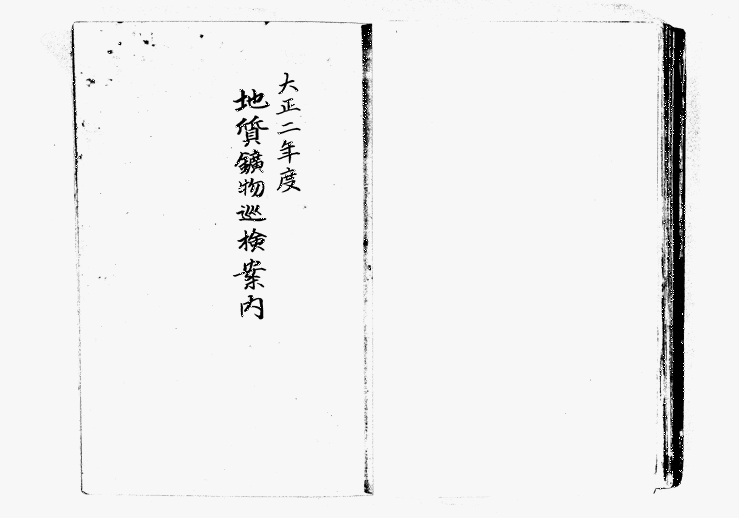 大正二年度
地質鑛物巡検案内